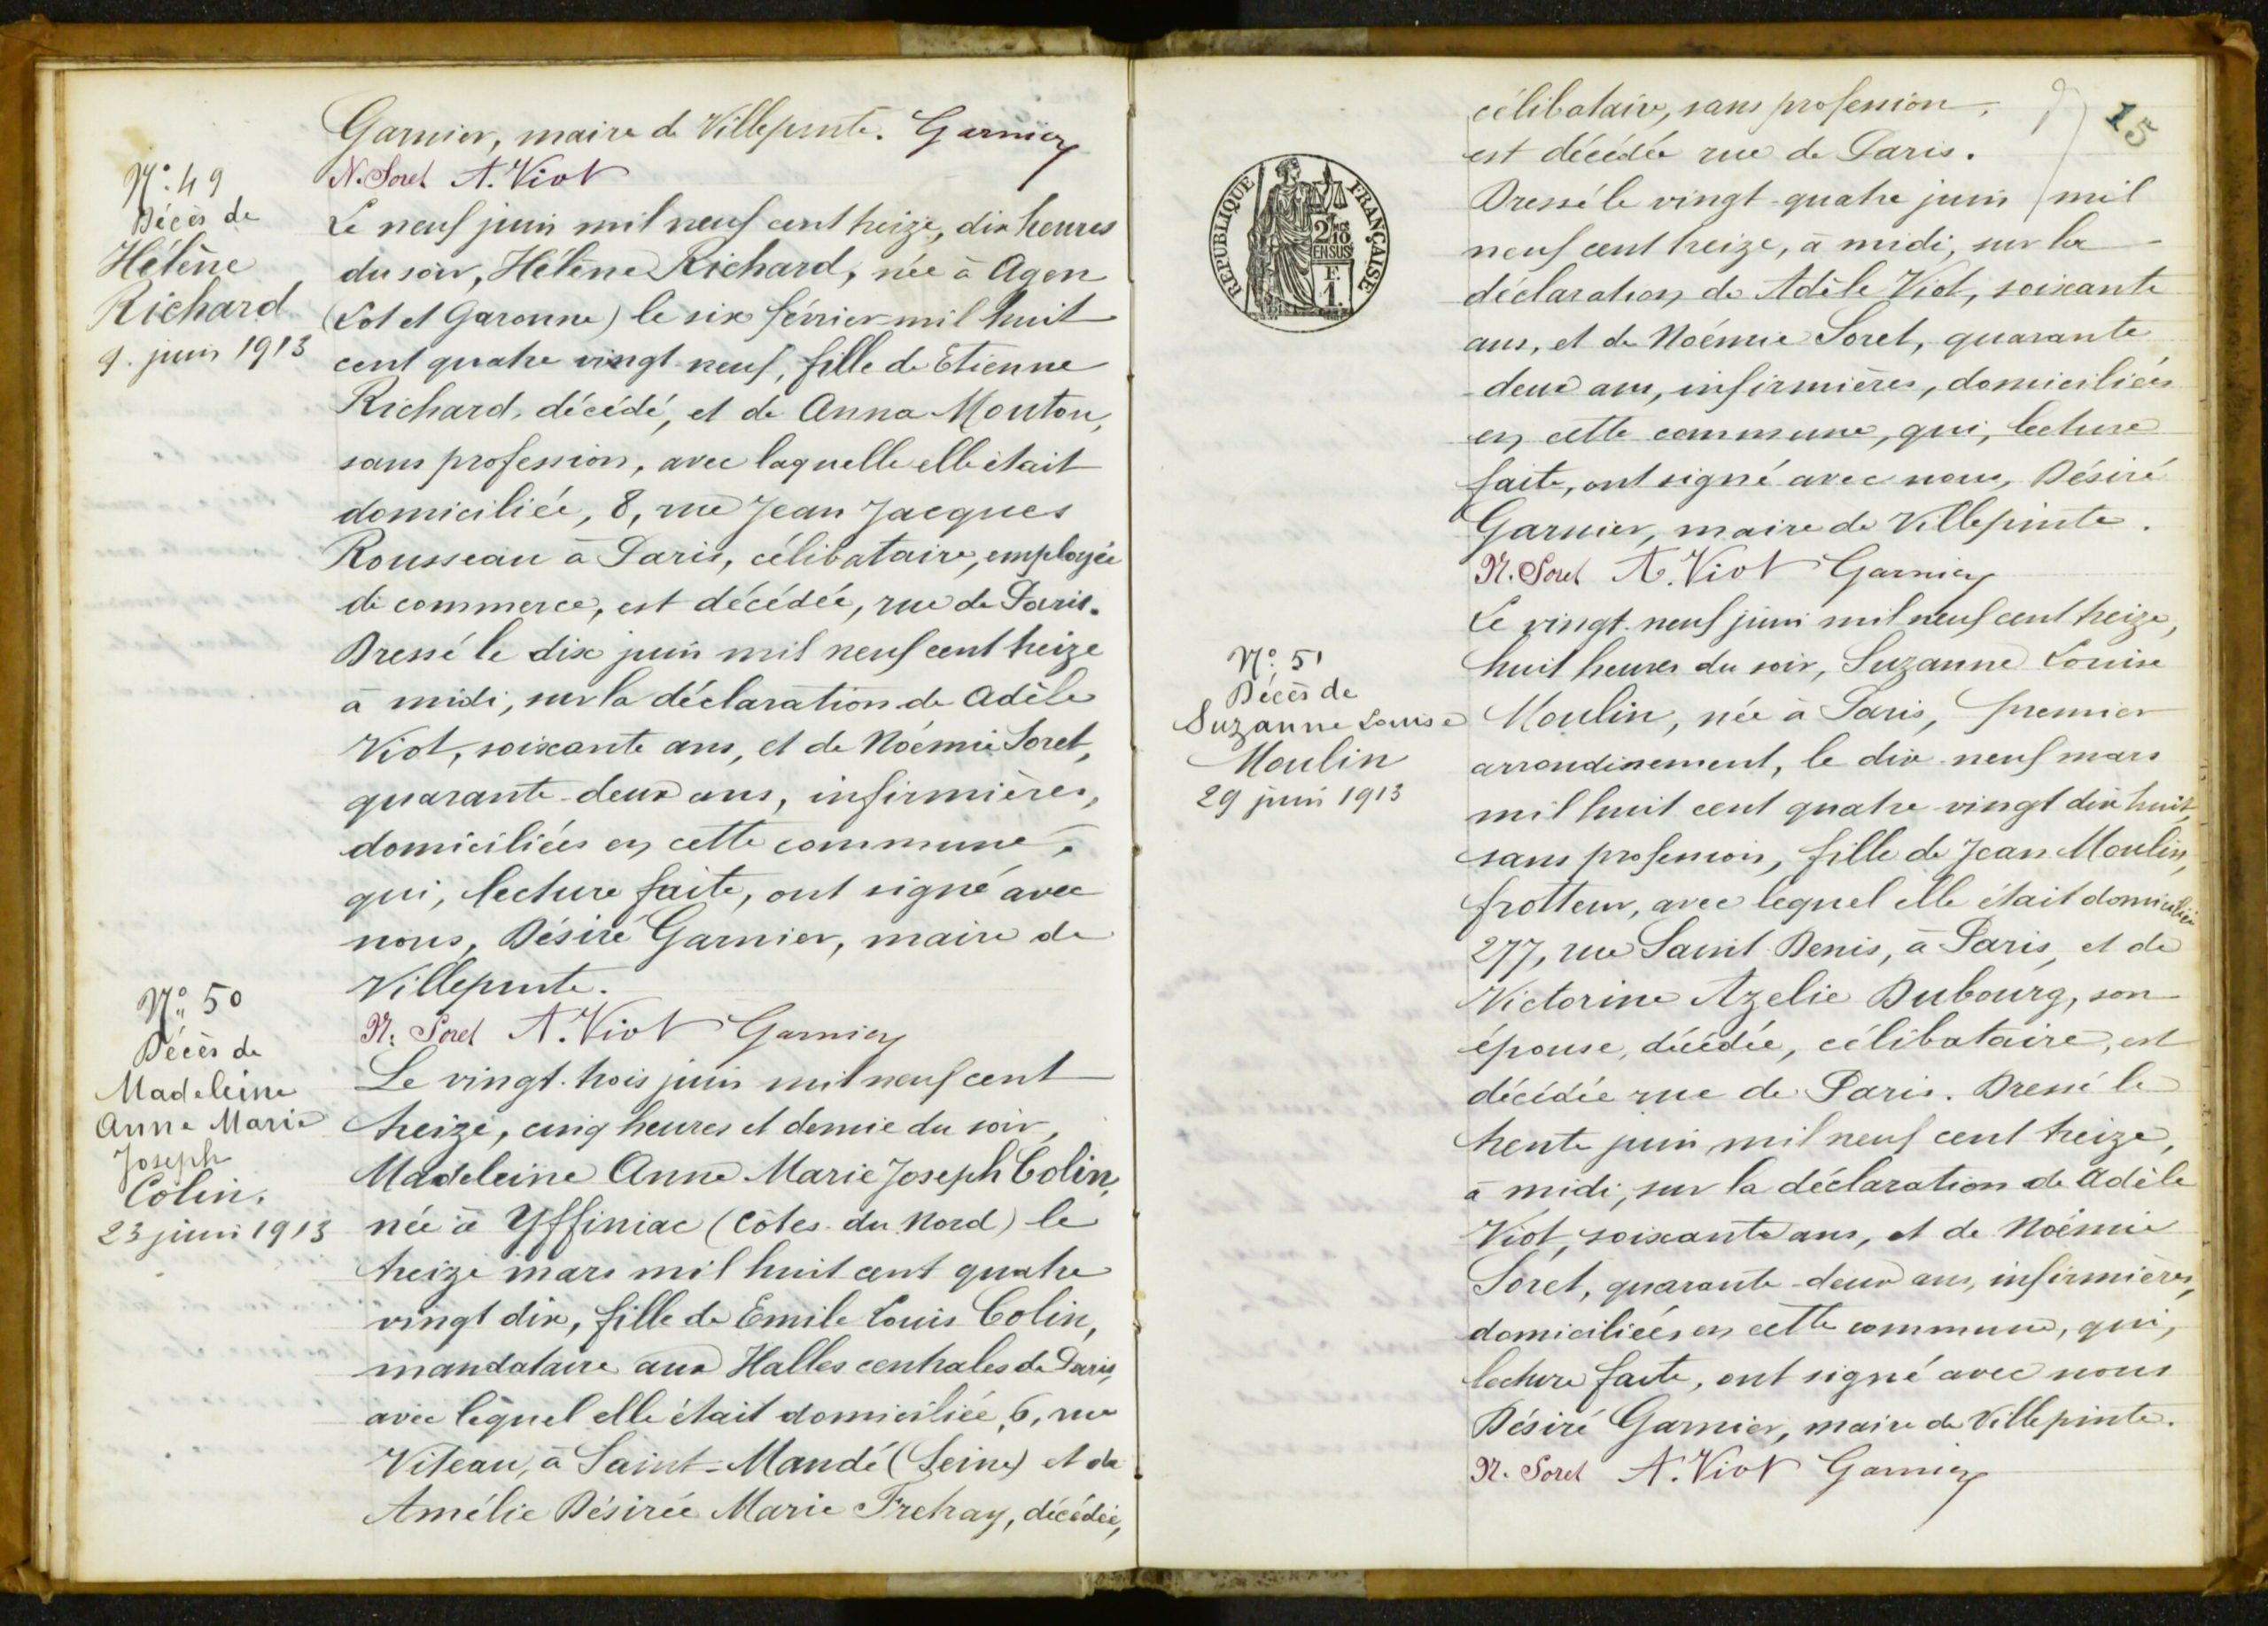 Garnier, maire de Villepinte. Garnier
N. Soret A. Viot
N° 49
Décès de
Hélène
Richard
9. juin 1913
Le neuf juin mil neuf cent treize, dix heures
du soir, Hélène Richard, née à Agen
(Lot et Garonne) le six février mil huit
cent quatre vingt-neuf, fille de Etienne
Richard, décédé, et de Anna Mouton,
sans profession, avec laquelle elle était
domiciliée, 8, rue Jean Jacques
Rousseau à Paris, célibataire, employée
de commerce, est décédée, rue de Paris.
Dressé le dix juin mil neuf cent treize
à midi, sur la déclaration de Adèle
Viot, soixante ans, et de Noémie Soret,
quarante-deux ans, infirmières,
domiciliées en cette commune,
qui, lecture faite, ont signé avec
nous, Désiré Garnier, maire de
Villepinte.
N. Soret A. Viot Garnier
N° 50
Décès de
Madeleine
Anne Marie
Joseph
Colin.
23 juin 1913
Le vingt-trois juin mil neuf cent
treize, cinq heures et demie du soir,
Madeleine Anne Marie Joseph Colin,
née à Yffiniac (Côtes-du-Nord) le
treize mars mil huit cent quatre
vingt dix, fille de Emile Louis Colin,
mandataire aux Halles centrales de Paris,
avec lequel elle était domiciliée, 6, rue
Viteau, à Saint-Mandé (Seine) et de
Amélie Désirée Marie Fretray, décédée,
15
célibataire, sans profession,
est décédée rue de Paris.
Dressé le vingt-quatre juin mil
neuf cent treize, à midi, sur la
déclaration de Adèle Viot, soixante
ans, et de Noémie Soret, quarante
-deux ans, infirmières, domiciliées
en cette commune, qui, lecture
faite, ont signé avec nous, Désiré
Garnier, maire de Villepinte.
N. Soret A. Viot Garnier
RÉPUBLIQUE FRANÇAISE
2/10
EN SUS
F.
1.
N° 51
Décès de
Suzanne Louise
Moulin
29 juin 1913
Le vingt-neuf juin mil neuf cent treize,
huit heures du soir, Suzanne Louise
Moulin, née à Paris, premier
arrondissement, le dix-neuf mars
mil huit cent quatre-vingt dix huit,
sans profession, fille de Jean Moulin,
frotteur, avec lequel elle était domiciliée
277, rue Saint-Denis, à Paris, et de
Victorine Azelie Dubourg, son
épouse, décédée, célibataire, est
décédée rue de Paris. Dressé le
trente juin mil neuf cent treize,
à midi, sur la déclaration de Adèle
Viot, soixante ans, et de Noémie
Soret, quarante-deux ans, infirmières,
domiciliées en cette commune, qui,
lecture faite, ont signé avec nous
Désiré Garnier, maire de Villepinte.
N. Soret A. Viot Garnier